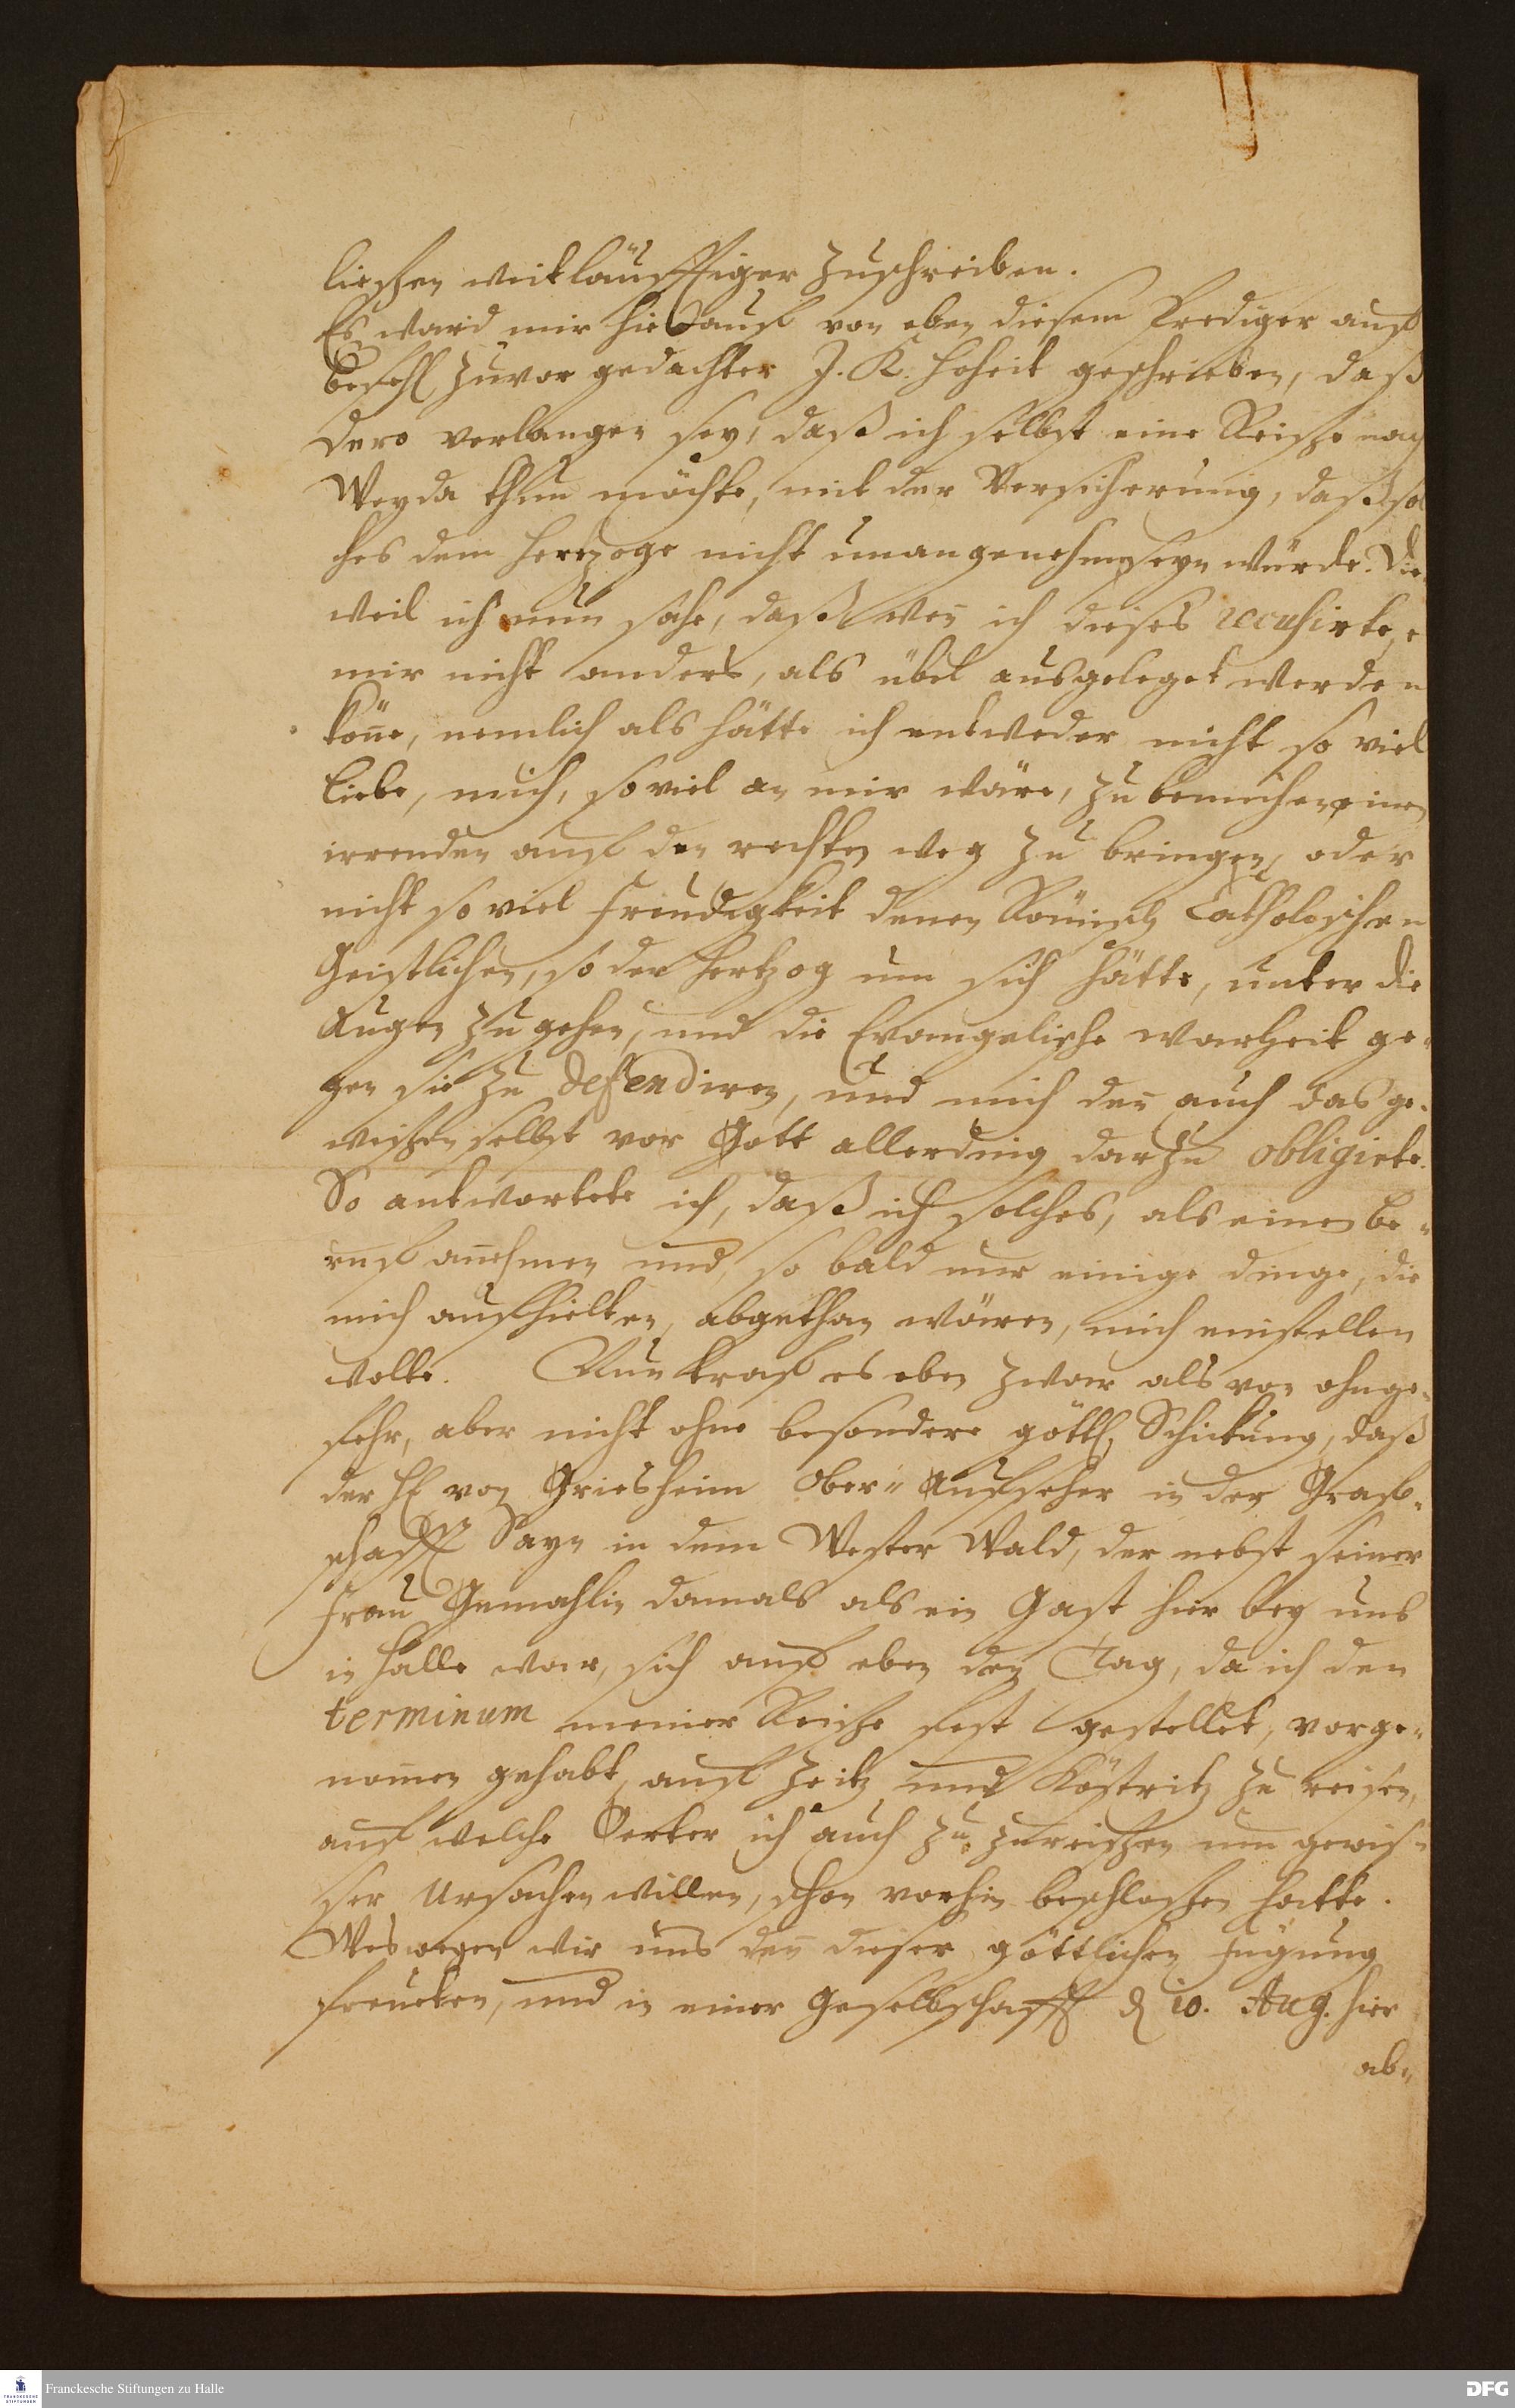 liessen weitläufftiger zuschreiben.
Es ward mir hierauf von eben diesem Prediger auf
befehl zuvor gedachter J. K. Hoheit geschrieben, daß
dero verlangen sey, daß ich selbst eine Reise nach
Weyda thun möchte, mit der Versicherung, daß sol
ches dem Hertzoge nicht unangenehm seyn würde. Die
weil ich nun sahe, daß weñ ich dieses recusirte, e
mir nicht anders, als übel ausgeleget werden
köñe, nemlich als hätte ich entweder nicht so viel
Liebe, mich, so viel an mir wäre, zu bemühen einen
irrenden auf den rechten weg zu bringen, oder
nicht so viel freudigkeit denen Römisch Catholischen
Geistlichen, so der Hertzog um sich hätte, unter die
Augen zu gehen, und die Evangelische warheit ge-
gen sie zu defendiren, und mich deñ auch das ge-
wissen selbst vor Gott allerding darzu obligirte.
So antwortete ich, daß ich solches, als einen be-
ruf añehmen und, so bald nur einige dinge, die
mich aufhielten, abgethan wären, mich einstellen
wolte. Nun traf es eben zwar als von ohnge-
fehr, aber nicht ohne besondere göttl. Schickung, daß
der H. von Griesheim Ober-Aufseher in der Graf-
schafft Sayn in dem Wester Wald, der nebst seiner
Frau Gemahlin damals als ein Gast hier bey uns
in Halle war, sich auf eben den Tag, da ich den
terminum meiner Reise fest gestellet, vorge-
nom̄en gehabt, auf Zeitz und Köstritz zu reisen,
auf welche Oerter ich auch zu zureisen um gewis-
ser Ursachen willen, schon vorhin beschlossen hatte.
Weswegen wir uns deñ dieser göttlichen fügung
freueten, und in einer Gesellschafft d 10. Aug. hier
ab-
Franckesche Stiftungen zu Halle
FRANCKESCHE STIFTUNGEN
DFG